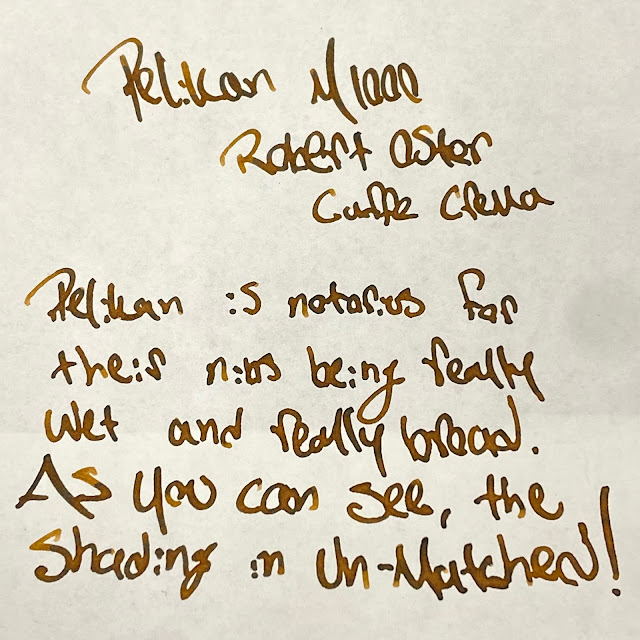 Pelikan M1000
Robert Oster
Caffe Crema
Pelikan is notorius for
their nibs being really
wet and really broad.
As you can see, the
Shading in Un-Matched!